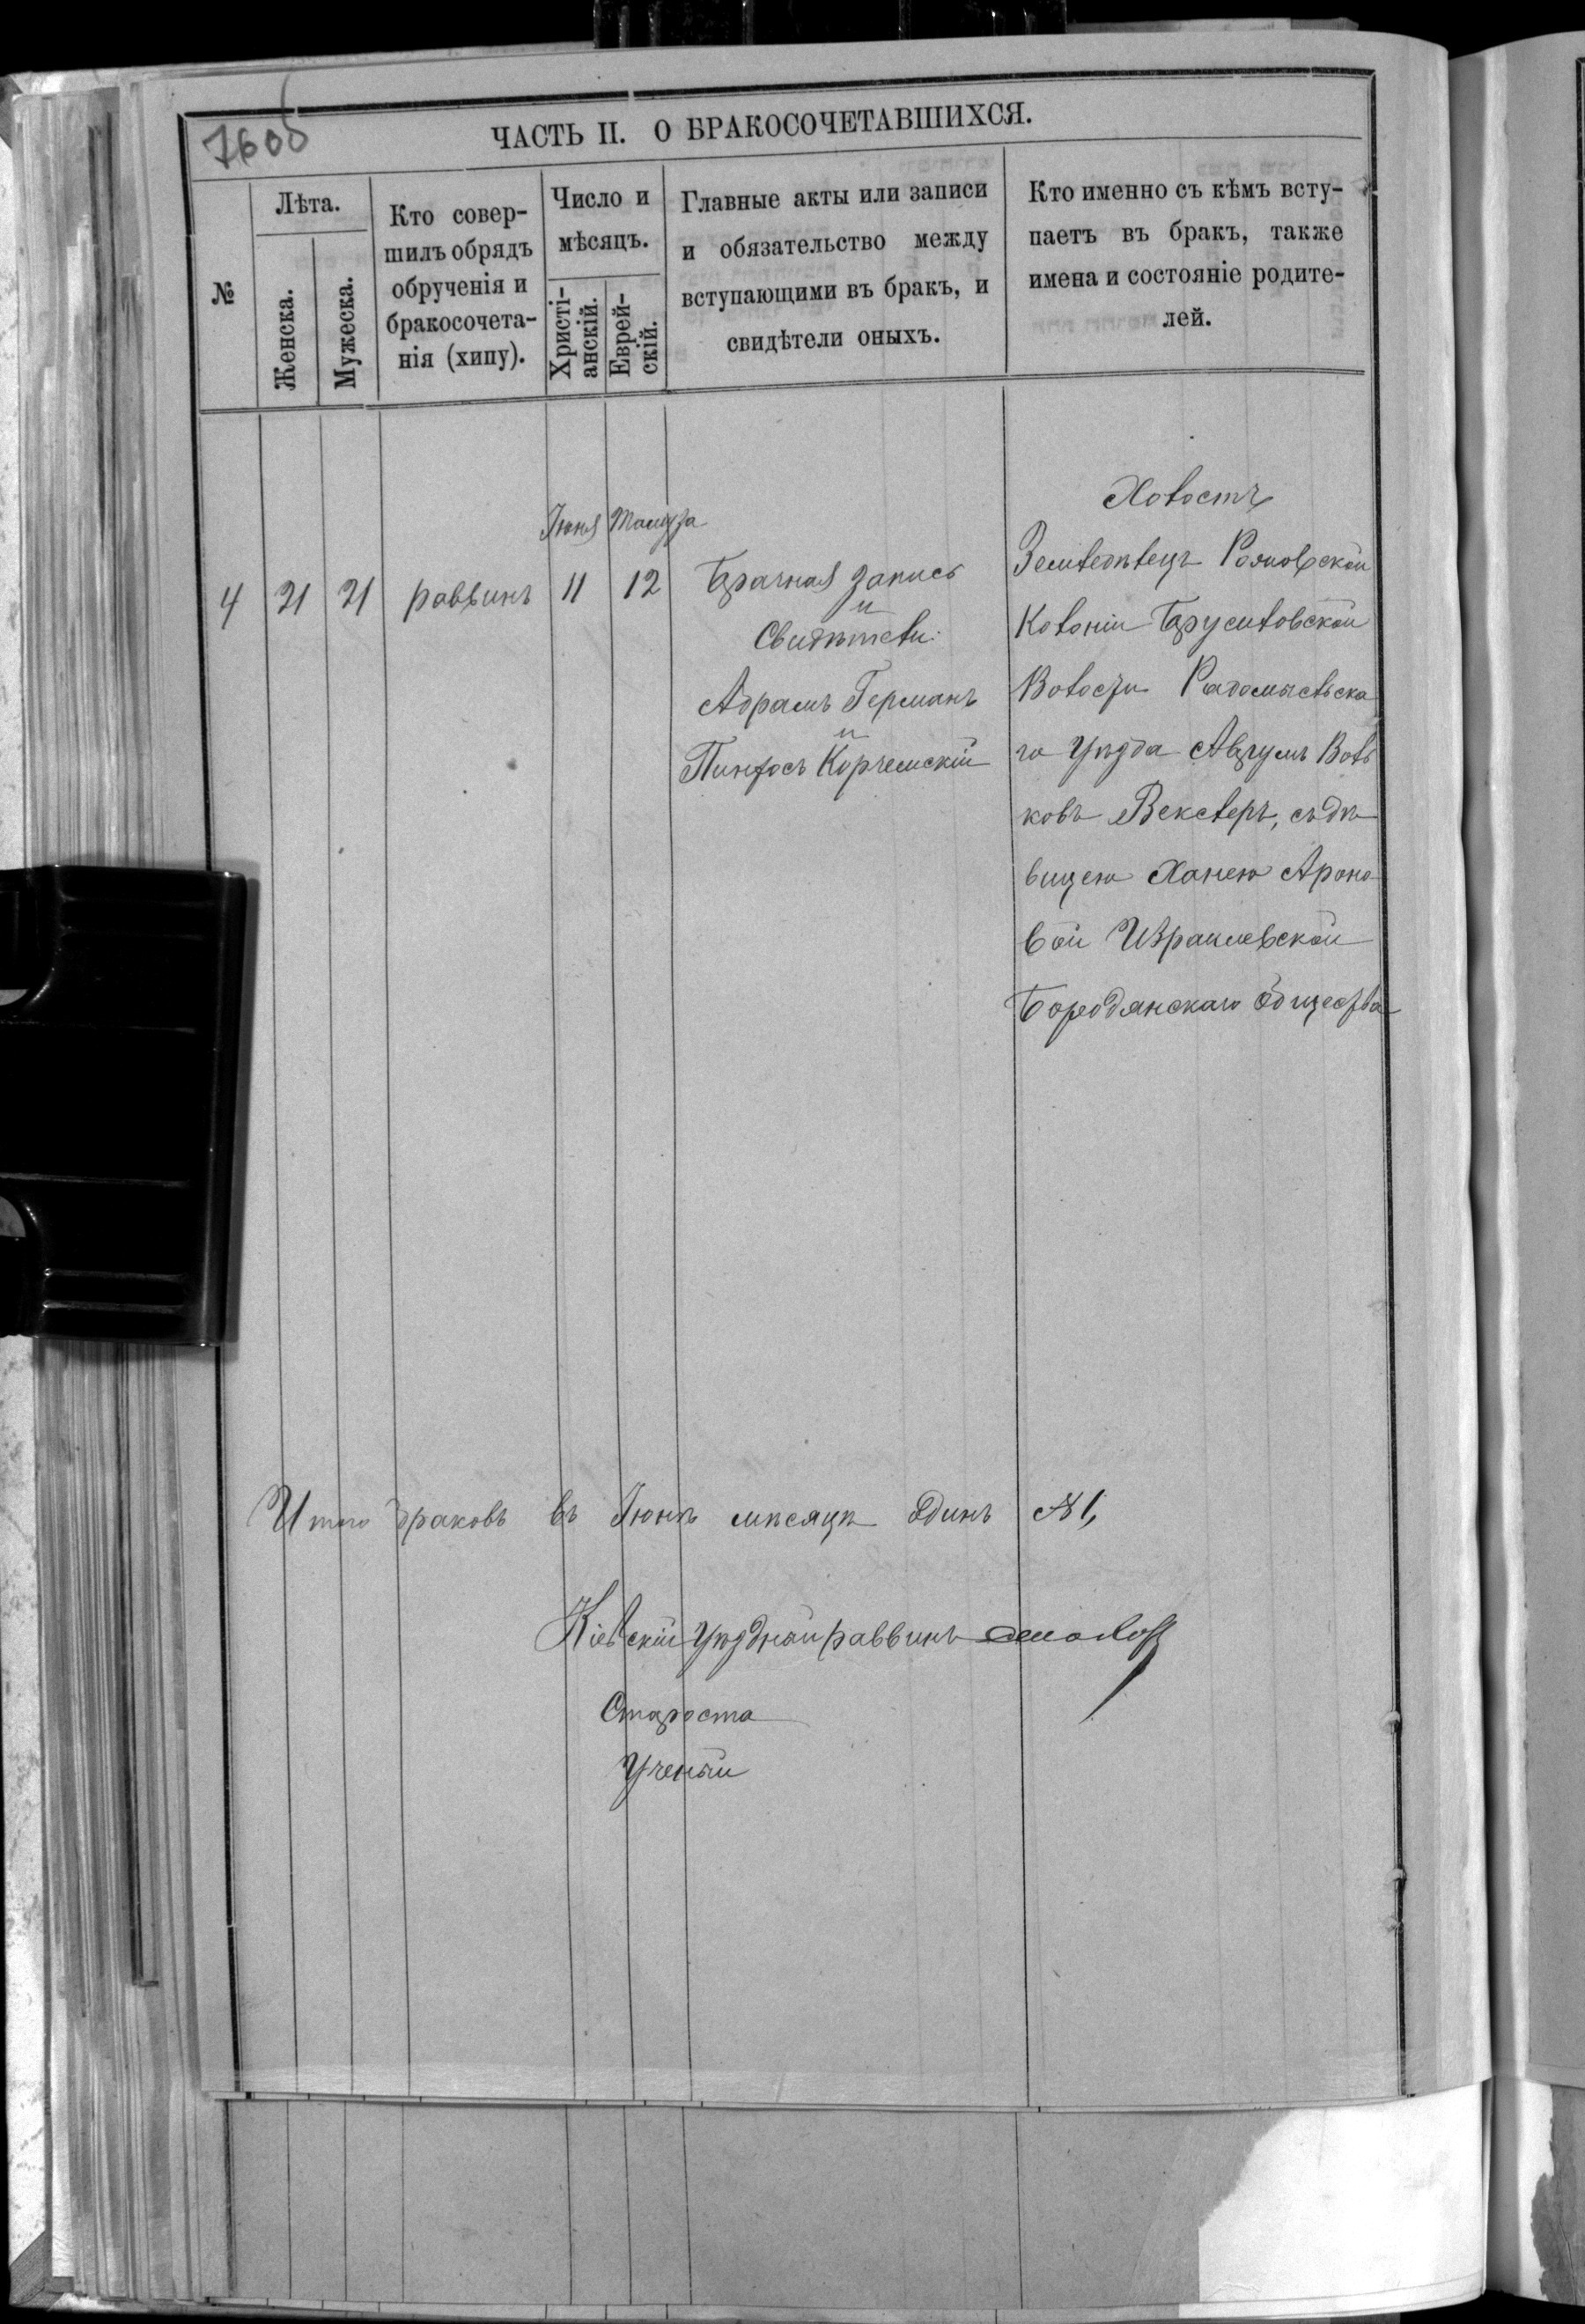 760б
ЧАСТЬ II. О БРАКОСОЧЕТАВШИХСЯ.
№
Лѣта.
Женска.
Мужеска.
Кто совер-
шилъ обрядъ
обрученія и
бракосочета-
нія (хипу).
Число и
мѣсяцъ.
Христі-
анскій.
Еврей-
скій.
Главные акты или записи
и обязательство между
вступающими въ бракъ, и
свидѣтели оныхъ.
Кто именно съ кѣмъ всту-
паетъ въ бракъ, также
имена и состояніе родите-
лей.
Іюня Тамуза
4 21 21 раввинъ 11 12
Брачная запись
и
Свидѣтели:
Абрамъ Германъ
и
Пинхосъ Корчемскій
Холостъ
Земледѣлецъ
Колоніи Брусиловской
Волости Радомысльска
го Уѣзда Аврумъ Воль
ковъ Векслеръ, съ дѣ
вицею Ханею Ароно
вой Израилевской
Бородянскаго Общества
Итого браковъ въ Іюнѣ мѣсяцѣ Одинъ №1,
Кіевскій Уѣздный раввинъ
Староста
Ученый